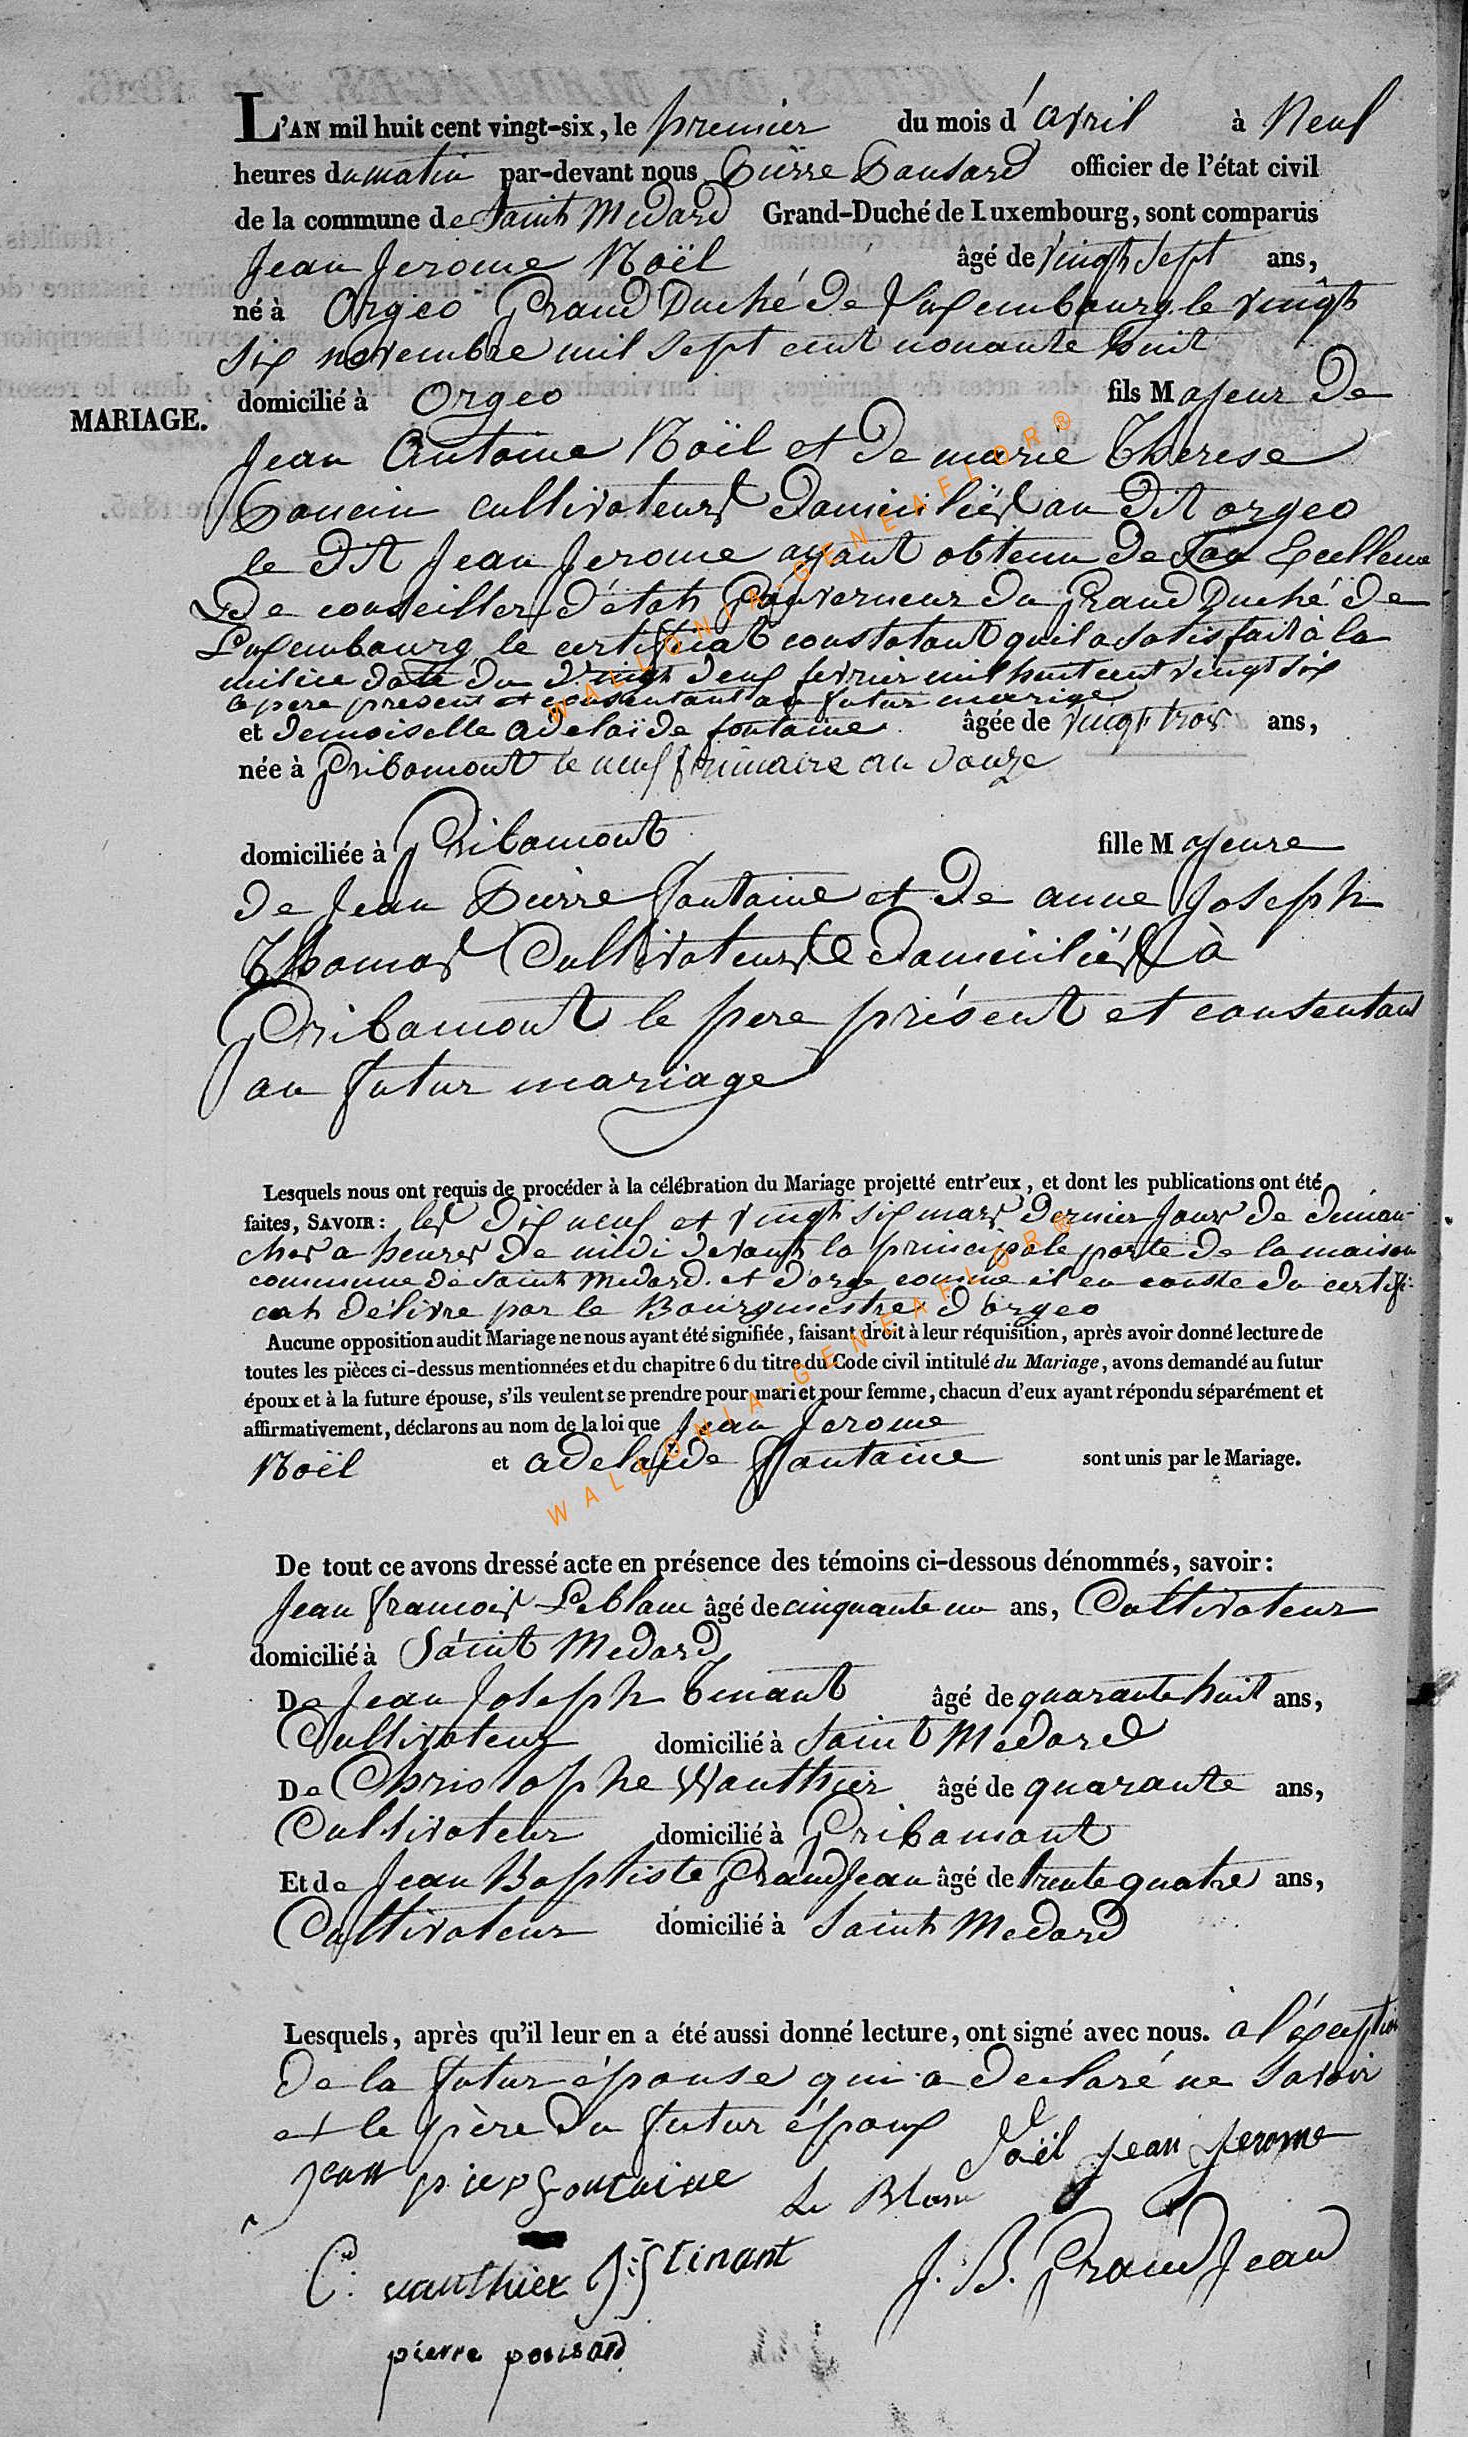 L'AN mil huit cent vingt-six, le premier du mois d'avril à Neuf
heures du matin par-devant nous Pierre Ponsard officier de l'état civil
de la commune de Saint Medard Grand-Duché de Luxembourg, sont comparus
Jean Jerome Noël âgé de vingt sept ans,
né à Orgeo Grand Duché de Luxembourg le vingt
six novembre mil sept cent nonante huit
domicilié à Orgeo fils Majeur de
MARIAGE.
Jean Antoine Noël et de marie Therese
Poncin cultivateurs domiciliés au dit orgeo
le dit Jean Jerome ayant obtenu de Son Excellence
Le conseiller d'état Gouverneur du Grand Duché de
Luxembourg le certificat constatant qu'il a satisfait à la
milice daté du vingt deux fevrier mil huit cent vingt six
le pere present et consentant au futur mariage
et demoiselle adelaïde fontaine âgée de vingt trois ans,
née à Gribomont le neuf frimaire an douze
domiciliée à Gribomont fille Majeure
de Jean Pierre Fontaine et de anne Joseph
Thomas Cultivateurs domiciliés à
Gribomont le pere présent et consentant
au futur mariage
Lesquels nous ont requis de procéder à la célébration du Mariage projetté entr'eux, et dont les publications ont été
faites, SAVOIR : les dix neuf et vingt six mars dernier jours de diman-
ches a heures de midi devant la principale porte de la maison
commune de Saint Medard et d'orgeo comme il en conste du certifi-
cat délivré par le Bourgmestre d'orgeo
Aucune opposition audit Mariage ne nous ayant été signifiée, faisant droit à leur réquisition, après avoir donné lecture de
toutes les pièces ci-dessus mentionnées et du chapitre 6 du titre du Code civil intitulé du Mariage, avons demandé au futur
époux et à la future épouse, s'ils veulent se prendre pour mari et pour femme, chacun d'eux ayant répondu séparément et
affirmativement, déclarons au nom de la loi que Jean Jerome
Noël et adelaïde Fontaine sont unis par le Mariage.
De tout ce avons dressé acte en présence des témoins ci-dessous dénommés, savoir :
Jean francois Leblanc âgé de cinquante un ans, Cultivateur
domicilié à Saint Medard
De Jean Joseph tinant âgé de quarante huit ans,
Cultivateur domicilié à Saint Medard
De Christophe Wauthier âgé de quarante ans,
Cultivateur domicilié à Gribomont
Et de Jean Baptiste GrandJean âgé de trente quatre ans,
Cultivateur domicilié à Saint Medard
Lesquels, après qu'il leur en a été aussi donné lecture, ont signé avec nous. à l'exception
de la futur épouse qui a declaré ne Savoir
et le père du futur époux
Noël jean jerome
jean pier fontaine
Le Blanc
C: vauthier J: J tinant J. B. GrandJean
pierre ponsard
WALLONIA-GENEAFLOR®
WALLONIA-GENEAFLOR®